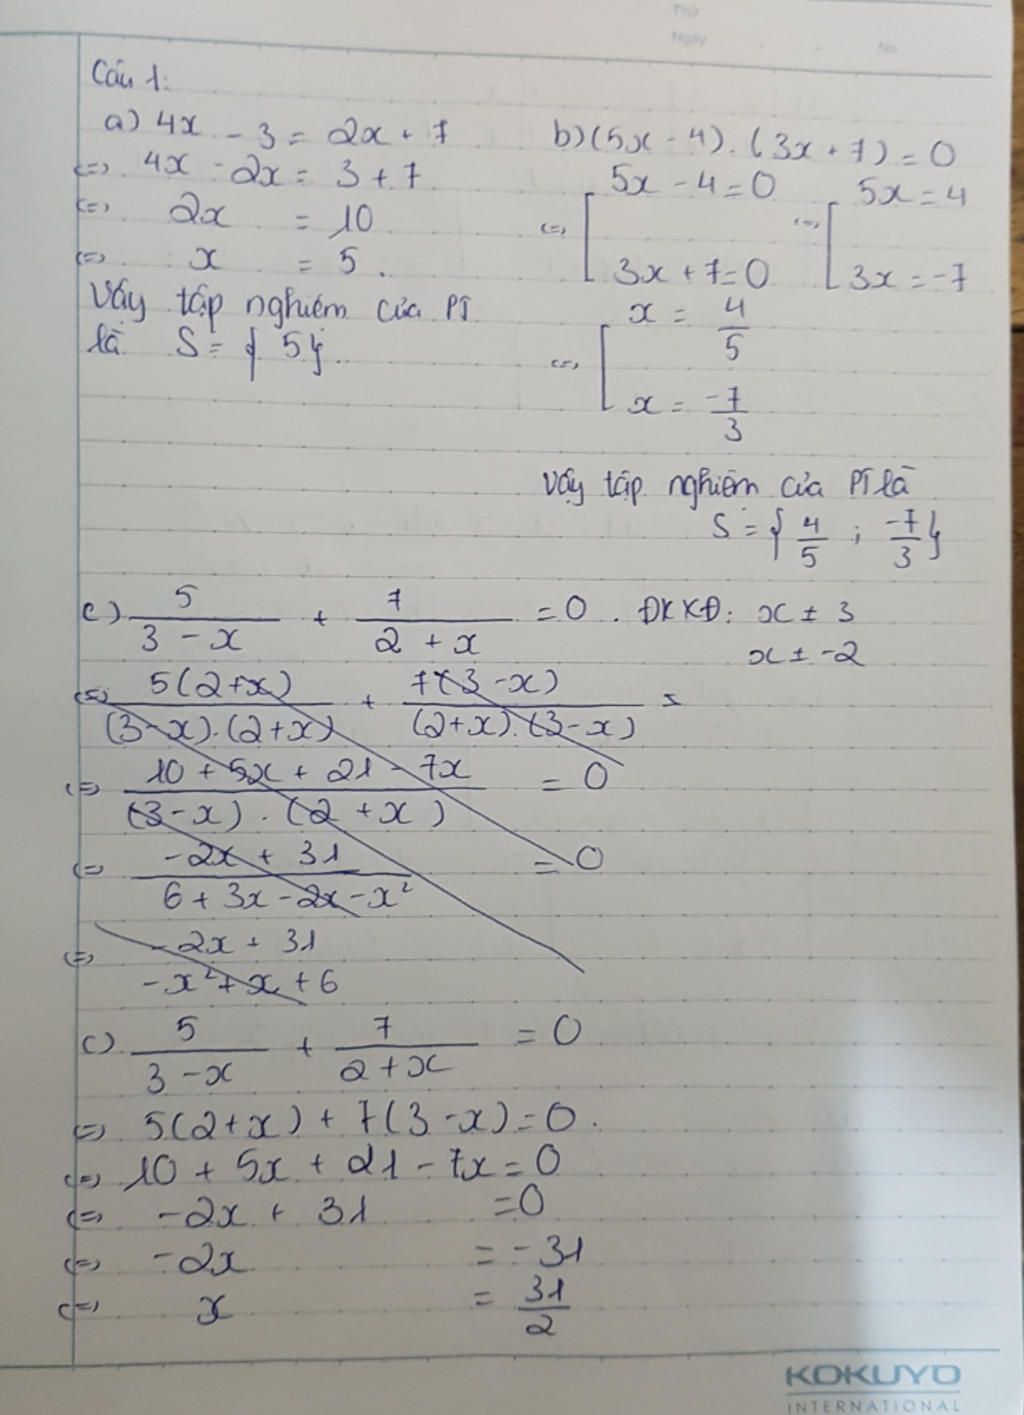 Thứ
Ngày
No
Câu 1:
a) 4x - 3 = 2x + 7
<=> 4x - 2x = 3 + 7
<=> 2x = 10
<=> x = 5.
Vậy tập nghiệm của PT
là S = { 5 }.
b) (5x - 4).(3x + 7) = 0
<=> [ 5x - 4 = 0 <=> [ 5x = 4
3x + 7 = 0 3x = -7
<=> [ x = 4/5
x = -7/3
Vậy tập nghiệm của PT là
S = { 4/5 ; -7/3 }
c) 5/(3 - x) + 7/(2 + x) = 0. ĐKXĐ: x ± 3
x ± -2
<=> 5(2+x)/(3-x).(2+x) + 7(3-x)/(2+x).(3-x) =
<=> (10 + 5x + 21 - 7x)/(3-x).(2+x) = 0
<=> (-2x + 31)/(6 + 3x - 2x - x²) = 0
<=> (-2x + 31)/(-x² + x + 6)
c) 5/(3 - x) + 7/(2 + x) = 0
<=> 5(2+x) + 7(3-x) = 0.
<=> 10 + 5x + 21 - 7x = 0
<=> -2x + 31 = 0
<=> -2x = -31
<=> x = 31/2
KOKUYO
INTERNATIONAL